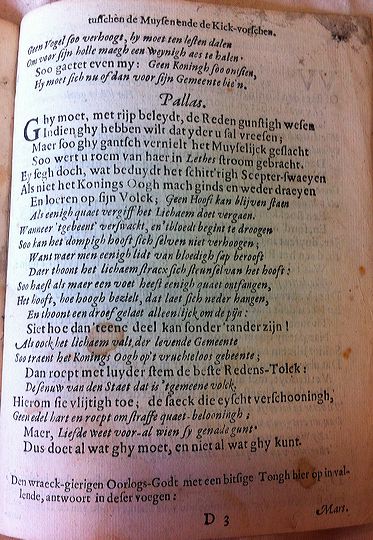 tusschen de Muysen ende de Kick-vorschen.
Geen Vogel soo verhoogt, hy moet ten lesten dalen
Om voor sijn holle maegh een weynigh aes te halen.
Soo gaetet even my: Geen Koningh soo ontsien,
Hy moet sich nu of dan voor sijn Gemeente bie'n.
Pallas.
Ghy moet, met rijp beleydt, de Reden gunstigh wesen
Indien ghy hebben wilt dat yder u sal vreesen;
Maer soo ghy gantsch vernielt het Muyselijck geslacht
Soo wert u roem van haer in Lethes stroom gebracht.
Ey segh doch, wat beduydt het schitt'righ Scepter-swaeyen
Als niet het Konings Oogh mach ginds en weder draeyen
En loeren op sijn Volck; Geen Hooft kan blijven staen
Als eenigh quaet vergift het Lichaem doet vergaen.
Wanneer 'tgebeent' verswackt, en 'tbloedt begint te droogen
Soo kan het dompigh hooft sich selven niet verhoogen;
Want waer men eenigh lidt van bloedigh sap berooft
Daer thoont het lichaem stracx sich steunsel van het hooft:
Soo haest als maer een voet heeft eenigh quaet ontfangen,
Het hooft, hoe hoogh bezielt, dat laet sich neder hangen,
En thoont een droef gelaet alleenlijck om de pijn:
Siet hoe dan 'teene deel kan sonder 'tander zijn!
Als oock het lichaem valt, der levende Gemeente
Soo traent het Konings Oogh op 't vruchteloos gebeente;
Dan roept met luyder stem de beste Redens-Tolck:
De senuw van den Staet dat is 'tgemeene volck.
Hierom sie vlijtigh toe; de saeck die eyscht verschooningh,
Geen edel hart en roept om straffe quaet-belooningh;
Maer, Liefde weet voor-al wien sy genade gunt.
Dus doet al wat ghy moet, en niet al wat ghy kunt.
Den wraeck-gierigen Oorlogs-Godt met een bitsige Tongh hier op invallende,
lende, antwoort in deser voegen:
D 3
Mart.